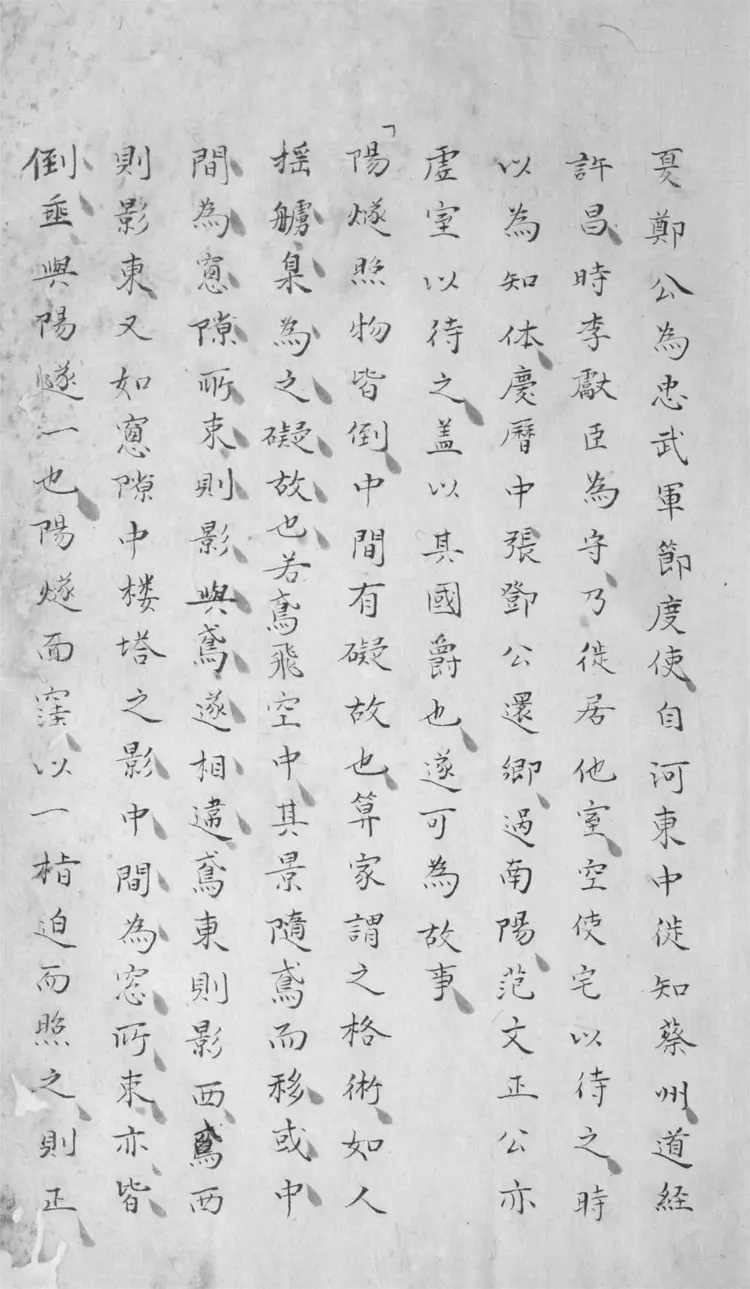 夏鄭公為忠武軍節度使自河東中徙知蔡州道経
許昌時李獻臣為守乃徙居他室空使宅以待之時
以為知体慶曆中張鄧公還鄉過南陽范文正公亦
虚室以待之盖以其國爵也遂可為故事
「陽燧照物皆倒中間有礙故也算家謂之格術如人
揺艣臬為之礙故也若鳶飛空中其景隨鳶而移或中
間為窓隙所束則影與鳶遂相違鳶東則影西鳶西
則影東又如窓隙中楼塔之影中間為窓所束亦皆
倒垂與陽燧一也陽燧面窪以一指迫而照之則正